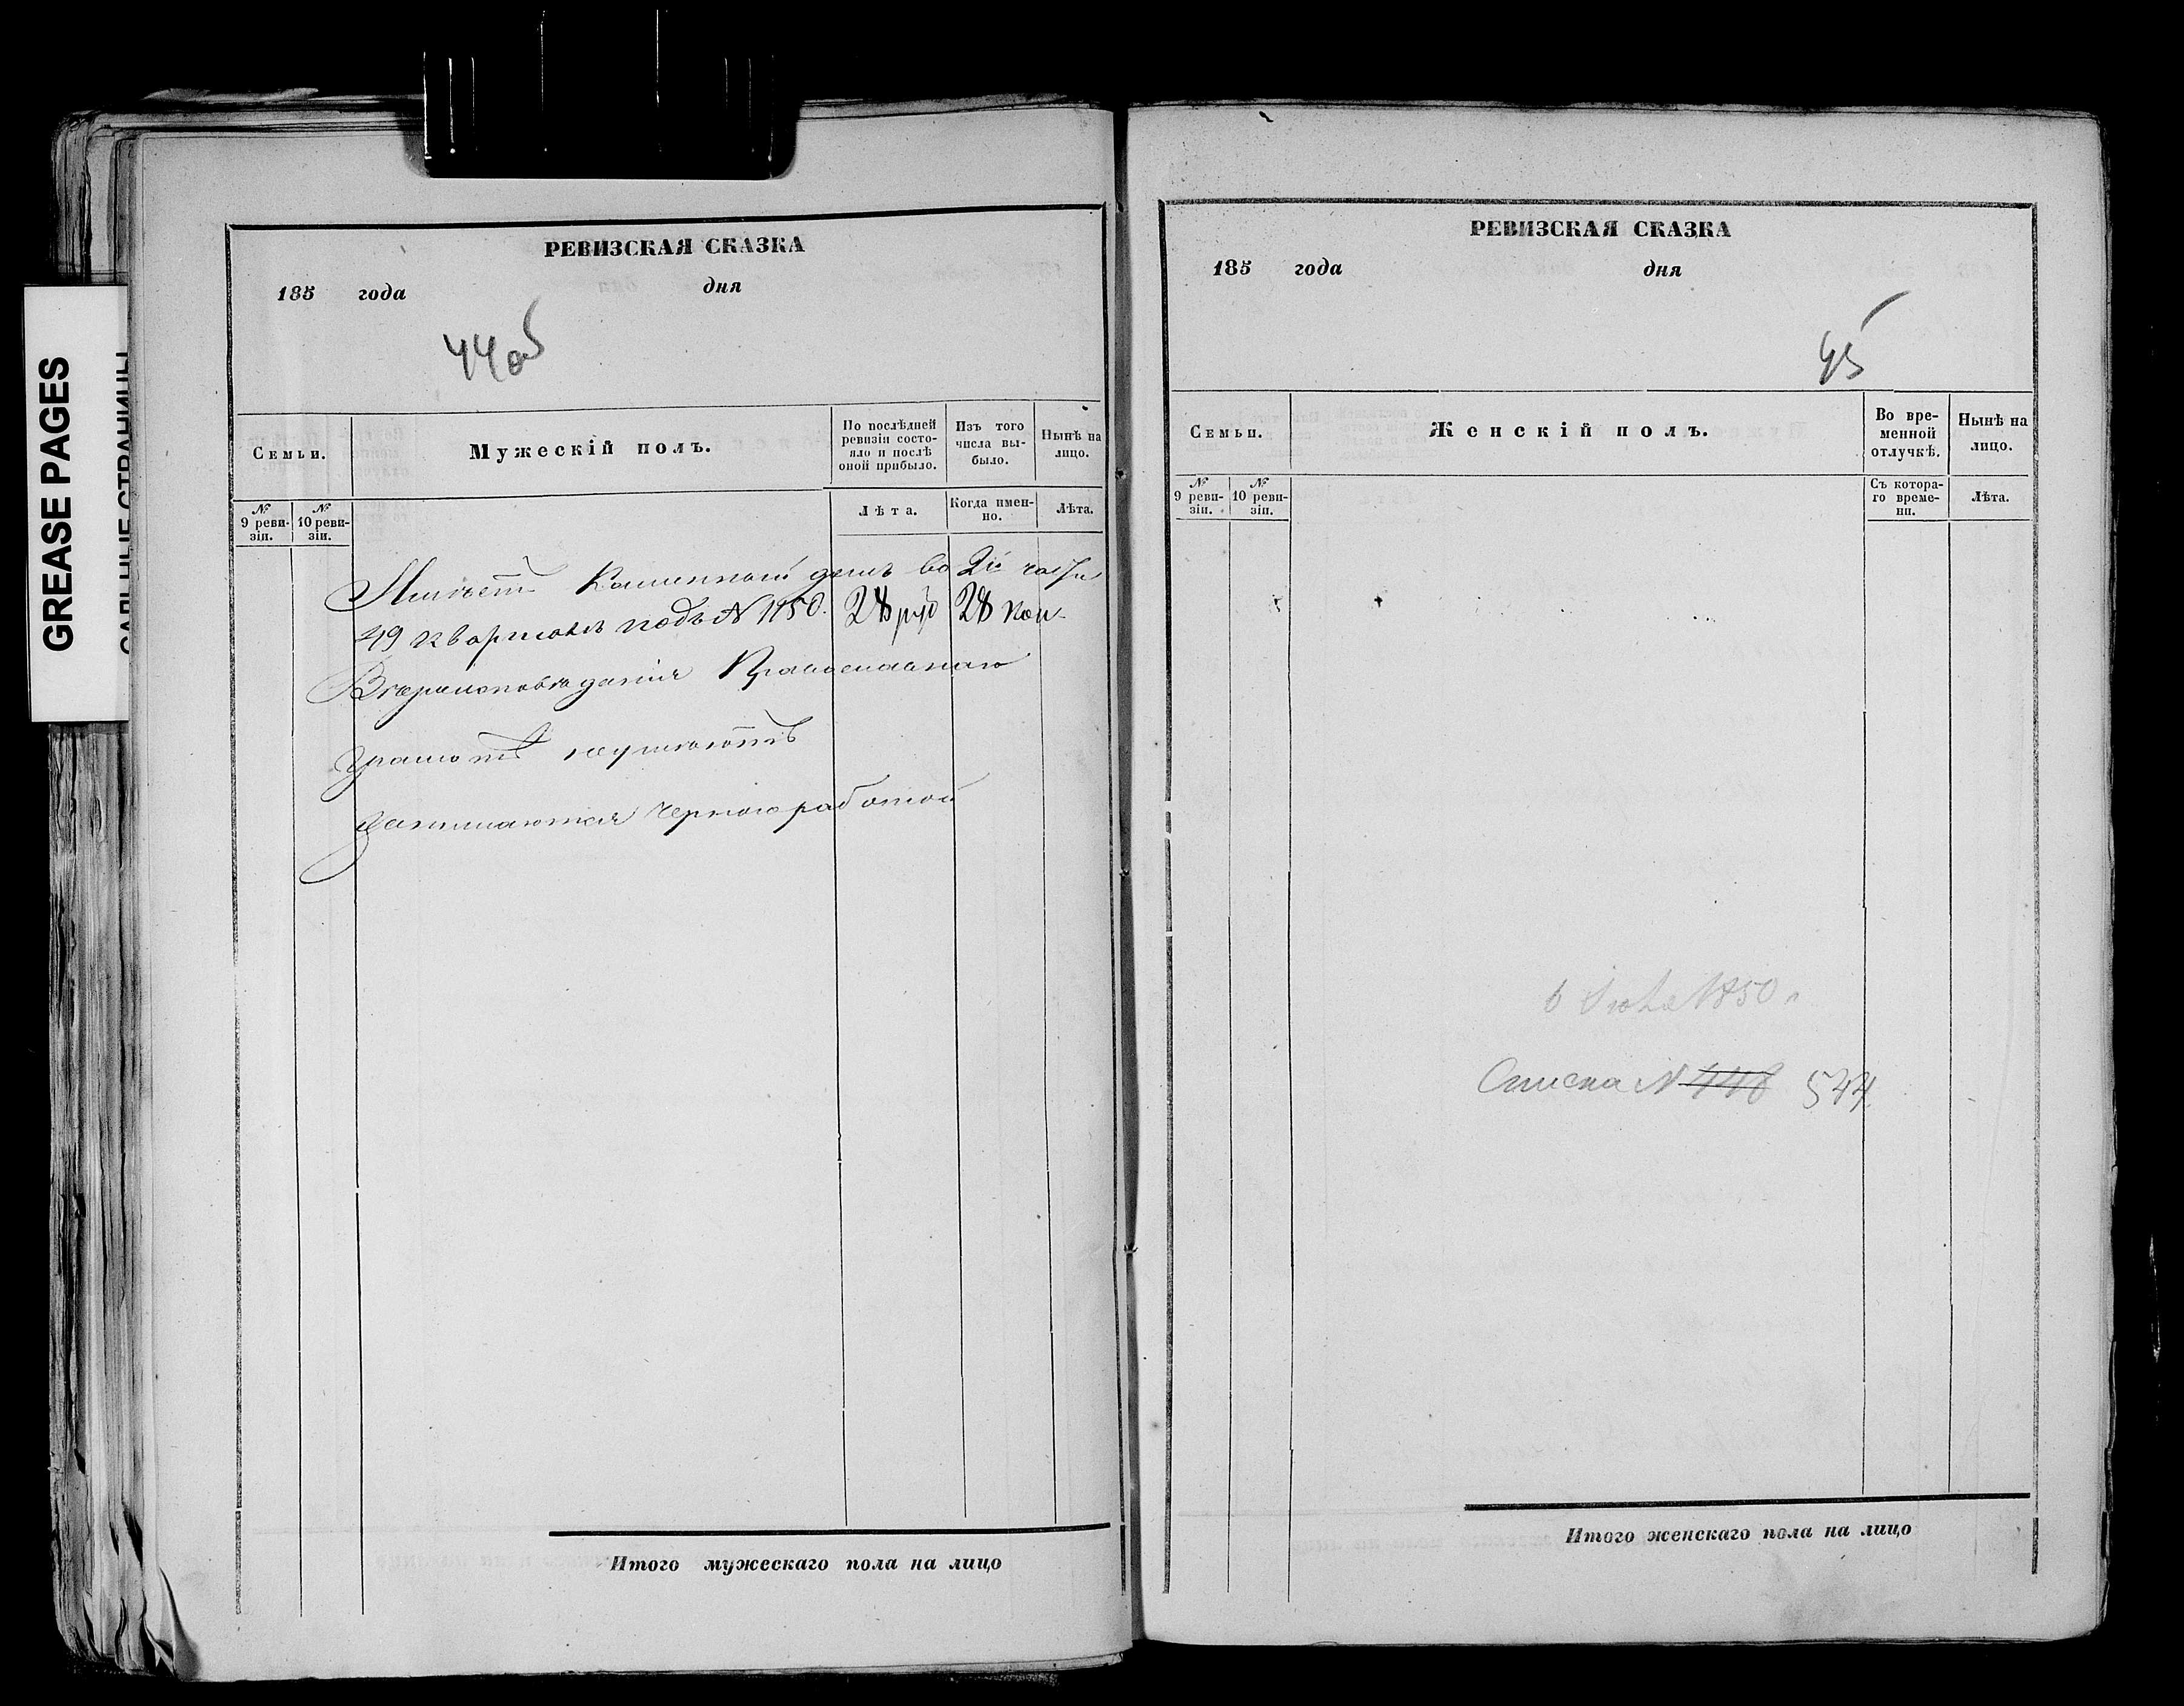 GREASE PAGES
РЕВИЗСКАЯ СКАЗКА
185 года дня
44 об
Семьи.
Мужескій полъ.
По послѣдней ревизіи состо-
яло и послѣ
оной прибыло.
Изъ того
числа вы-
было.
Нынѣ на
лицо.
№
9 реви-
зіи.
№
10 реви-
зіи.
Лѣта.
Когда имен-
но.
Лѣта.
Имѣетъ Каменный домъ во 2й части
49 квартала подъ № 1150. 28 руб 28 коп
Вѣроисповѣданія Православнаго
Грамотѣ неумѣютъ
Занимаются черною работой
Итого мужескаго пола на лицо
РЕВИЗСКАЯ СКАЗКА
185 года дня
45
Семьи.
Женскій полъ.
Во вре-
менной
отлучкѣ.
Нынѣ на
лицо.
№
9 реви-
зіи.
№
10 реви-
зіи.
Съ котора-
го време-
ни.
Лѣта.
6 1850
Списка № 448 544
Итого женскаго пола на лицо